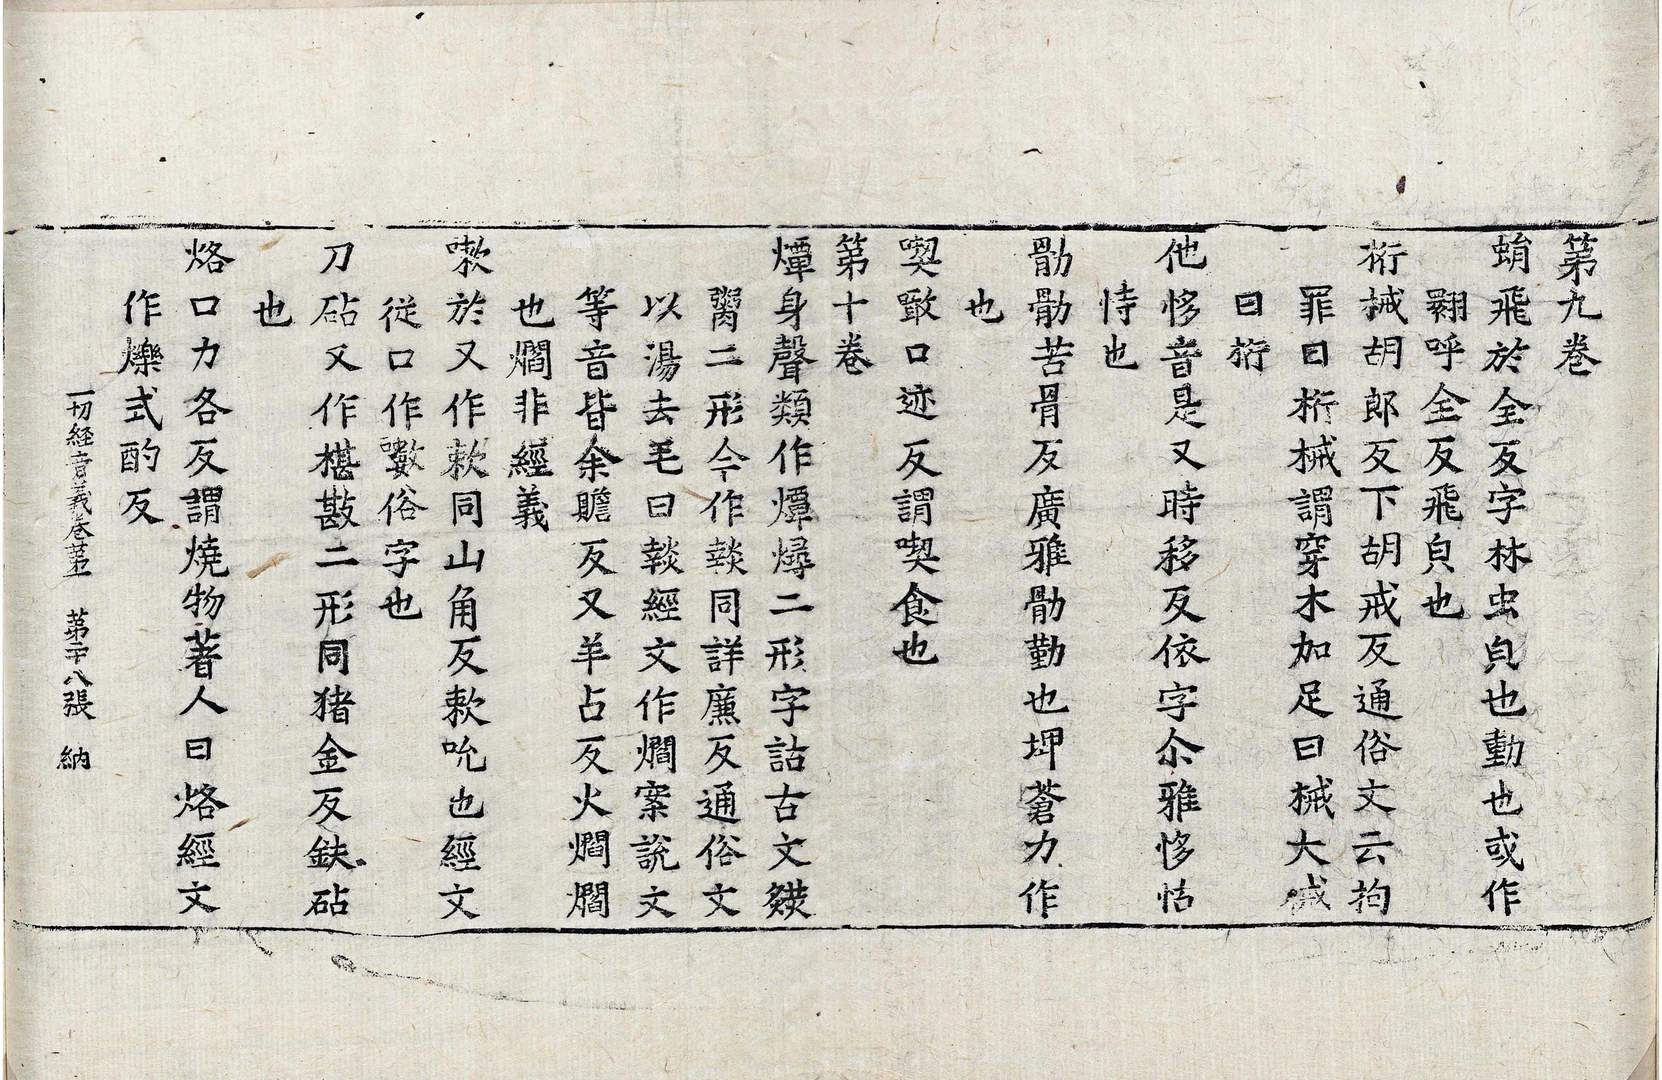 第九卷
蜎飛於全反字林虫皃也動也或作
翾呼全反飛皃也
桁械胡郎反下胡戒反通俗文云拘
罪曰桁械謂穿木加足曰械大械
曰桁
他恀音是又時移反依字尒雅恀怙
恃也
勖勖苦骨反廣雅勖勤也埤蒼力作
也
喫噉口迹反謂喫食也
第十卷
燂身聲類作燂燖二形字詁古文
二形今作䊠同詳廉反通俗文
以湯去毛曰䊠經文作爓案說文
等音皆余贍反又羊占反火爓爓
也爓非經義
嗽於又作欶同山角反欶吮也經文
従口作嗽俗字也
刀砧又作椹㪛二形同猪金反鈇砧
也
烙口力各反謂燒物著人曰烙經文
作爍式酌反
一切経音義卷第 第 八張 納